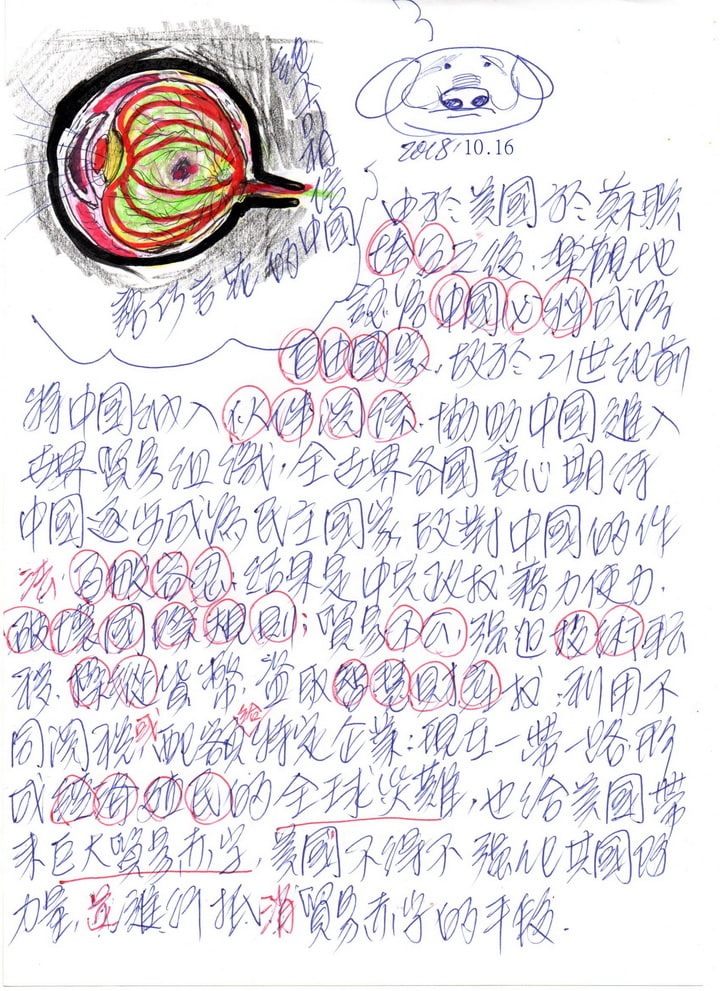 2018/10.16
絕不相信
謊話
言行
的中國
由於美國於蘇聯
垮台之後,樂觀地
認為中國必將成為
自由國家,故於21世紀前
將中國納入伙伴關係,協助中國進入
世界貿易組織,全世界各國衷心期待
中國逐步成為民主國家,故對中國的作
法,百般容忍,結果是中共政权藉力使力,
破壞國際規則;貿易不公,強迫技術転
移,操縱貨幣,盜取智慧財產权,利用不
同関税或配額給特定企業;現在一帶一路形
成經濟殖民的全球災難,也給美國帶
來巨大貿易赤字,美國不得不強化其國防
力量,並進行抵消貿易赤字的手段.